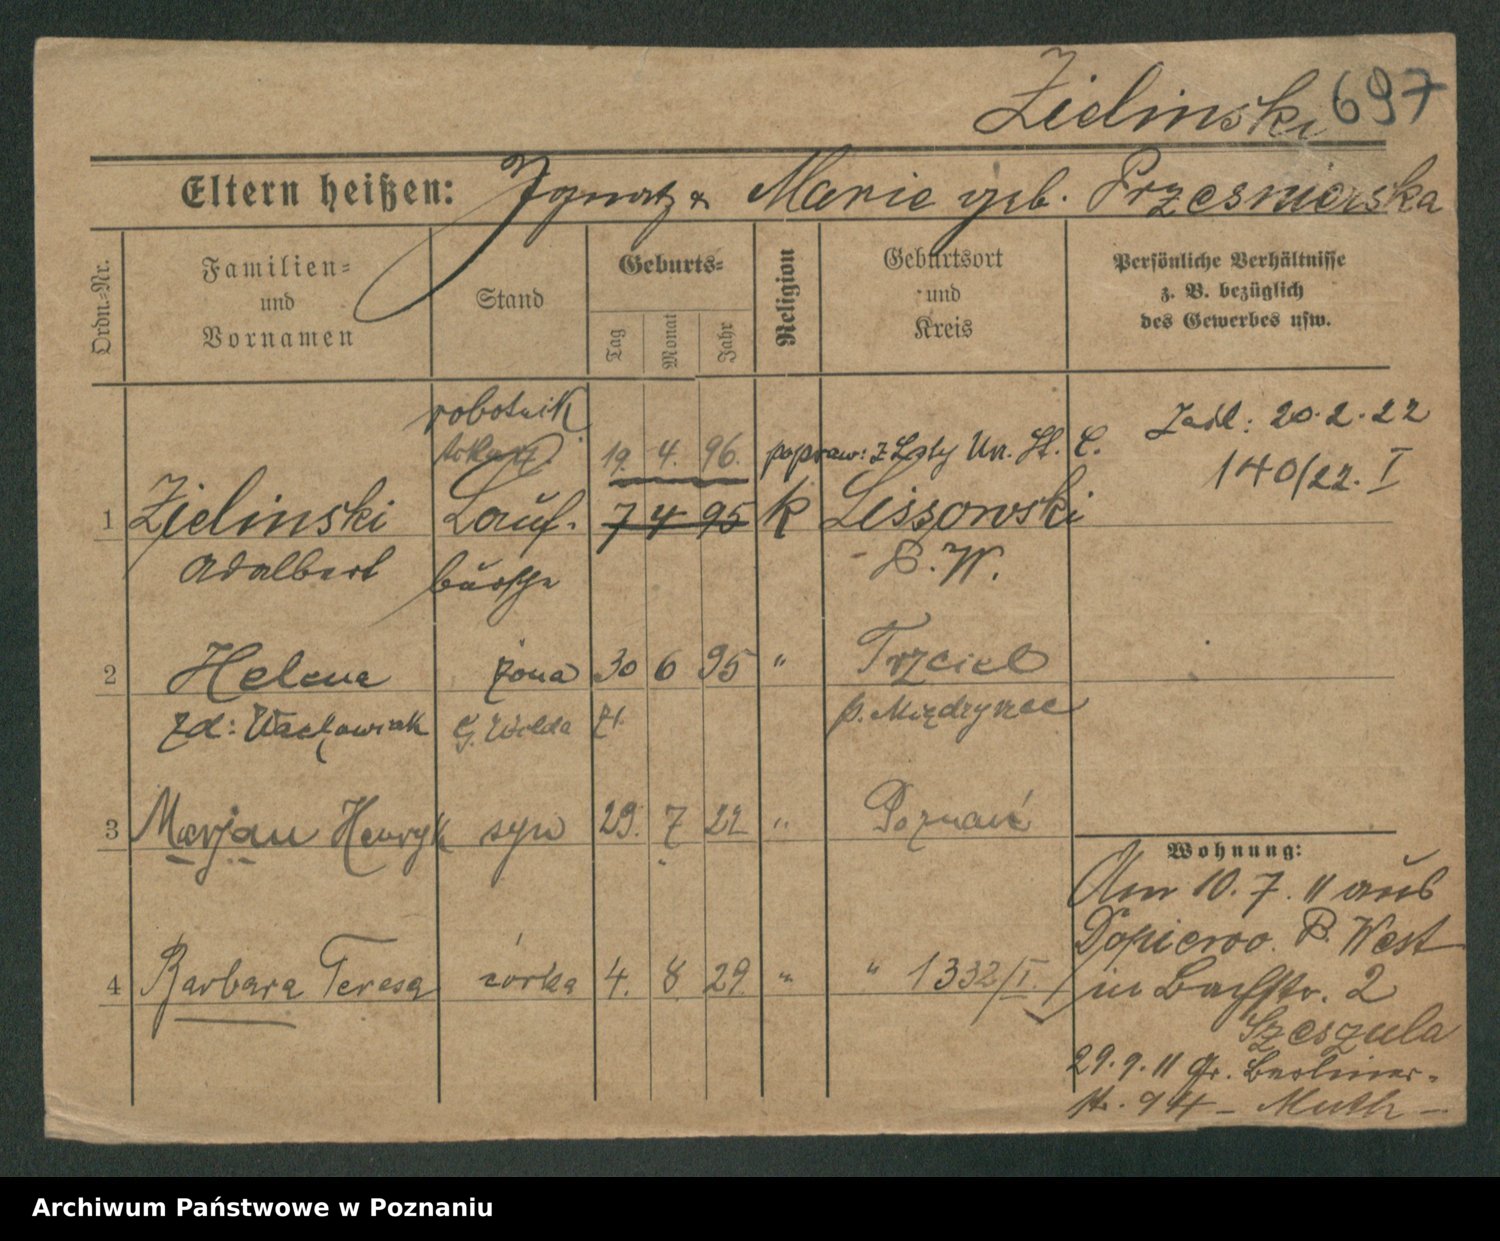 Zielinski 697
Eltern heißen: Ignatz & Marie geb. Przesnierska
Ordn.=Nr.
Familien=
und
Vornamen
Stand
Geburts=
Tag
Monat
Jahr
Religion
Geburtsort
und
Kreis
Persönliche Verhältnisse
z. B. bezüglich
des Gewerbes usw.
robotnik
tokarz.
19. 4. 96. popraw: z Listy Ur. St. C.
Zasl: 20.2.22
140/22. I
1 Zielinski Lauf- 7 4 95 k Lissowski
Adalbert bursche P.W.
2 Helena żona 30 6 95 " Trzciel
zd: Wacławiak G. Wilda p. Międzyrzec
3 Marjan Henryk syn 29. 7 22 " Poznań
4 Barbara Teresa córka 4. 8. 29. " " 1332/I.
Wohnung:
Am 10. 7. 11 aus
Dopierwo P. West
in Bachstr. 2
Szeszula
29.9.11 Gr. Berliner-
str. 94 - Muth -
Archiwum Państwowe w Poznaniu